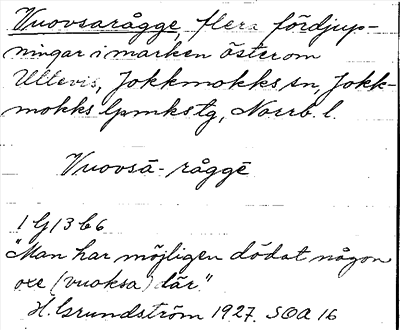 Vuovsarågge, flera fördjup-
ningar i marken österom
Ultevis, Jokkmokks sn, Jokk-
mokks lpmks tg, Norrb. l.
Vuovsā-råggē
1 G 13 b 6
"Man har möjligen dödat någon
oxe (vuoksa) där."
H. Grundström 1927. SOA 16